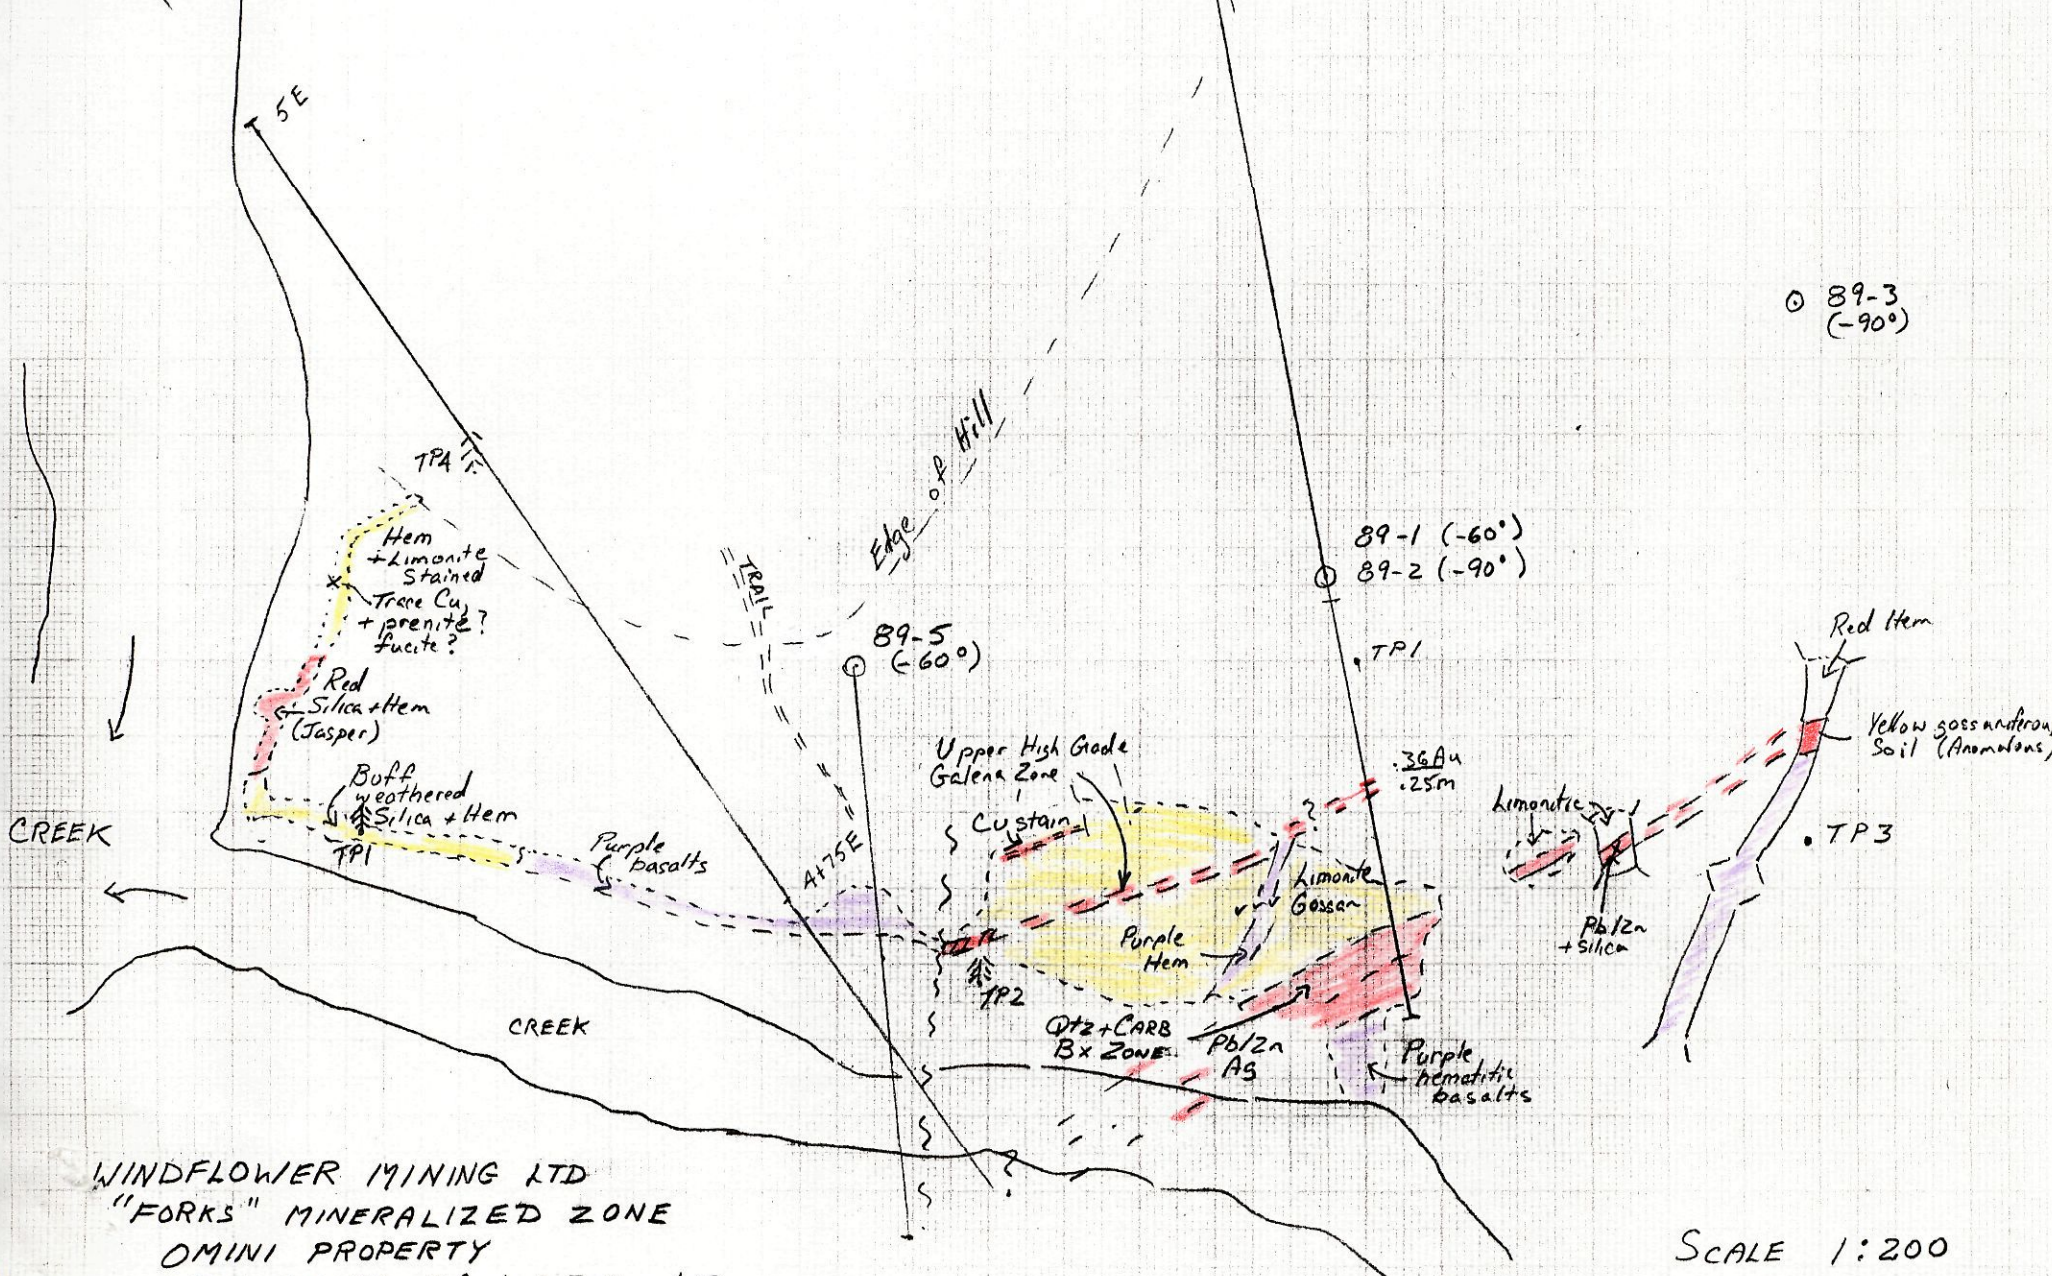 5E
89-3
(-90°)
TPA
Edge of Hill
Hem
+Limonite
Stained
Trace Cu,
+ prenite?
fucite?
TRAIL
89-1 (-60°)
89-2 (-90°)
89-5
(-60°)
TP1
Red Hem
Red
Silica+Hem
(Jasper)
Yellow gossaniferou
Soil (Anomalous)
Upper High Grade
Galena Zone
.36Au
.25m
Buff
weathered
Silica + Hem
Cu stain
?
Limonitic
CREEK
TP1
Purple
basalts
A+75E
TP3
Limonite
Gossan
Pb/Zn
+silica
Purple
Hem
TP2
CREEK
Qtz+CARB
Bx ZONE
Pb/Zn
Ag
Purple
hematitic
basalts
?
WINDFLOWER MINING LTD
"FORKS" MINERALIZED ZONE
OMINI PROPERTY
SCALE 1:200